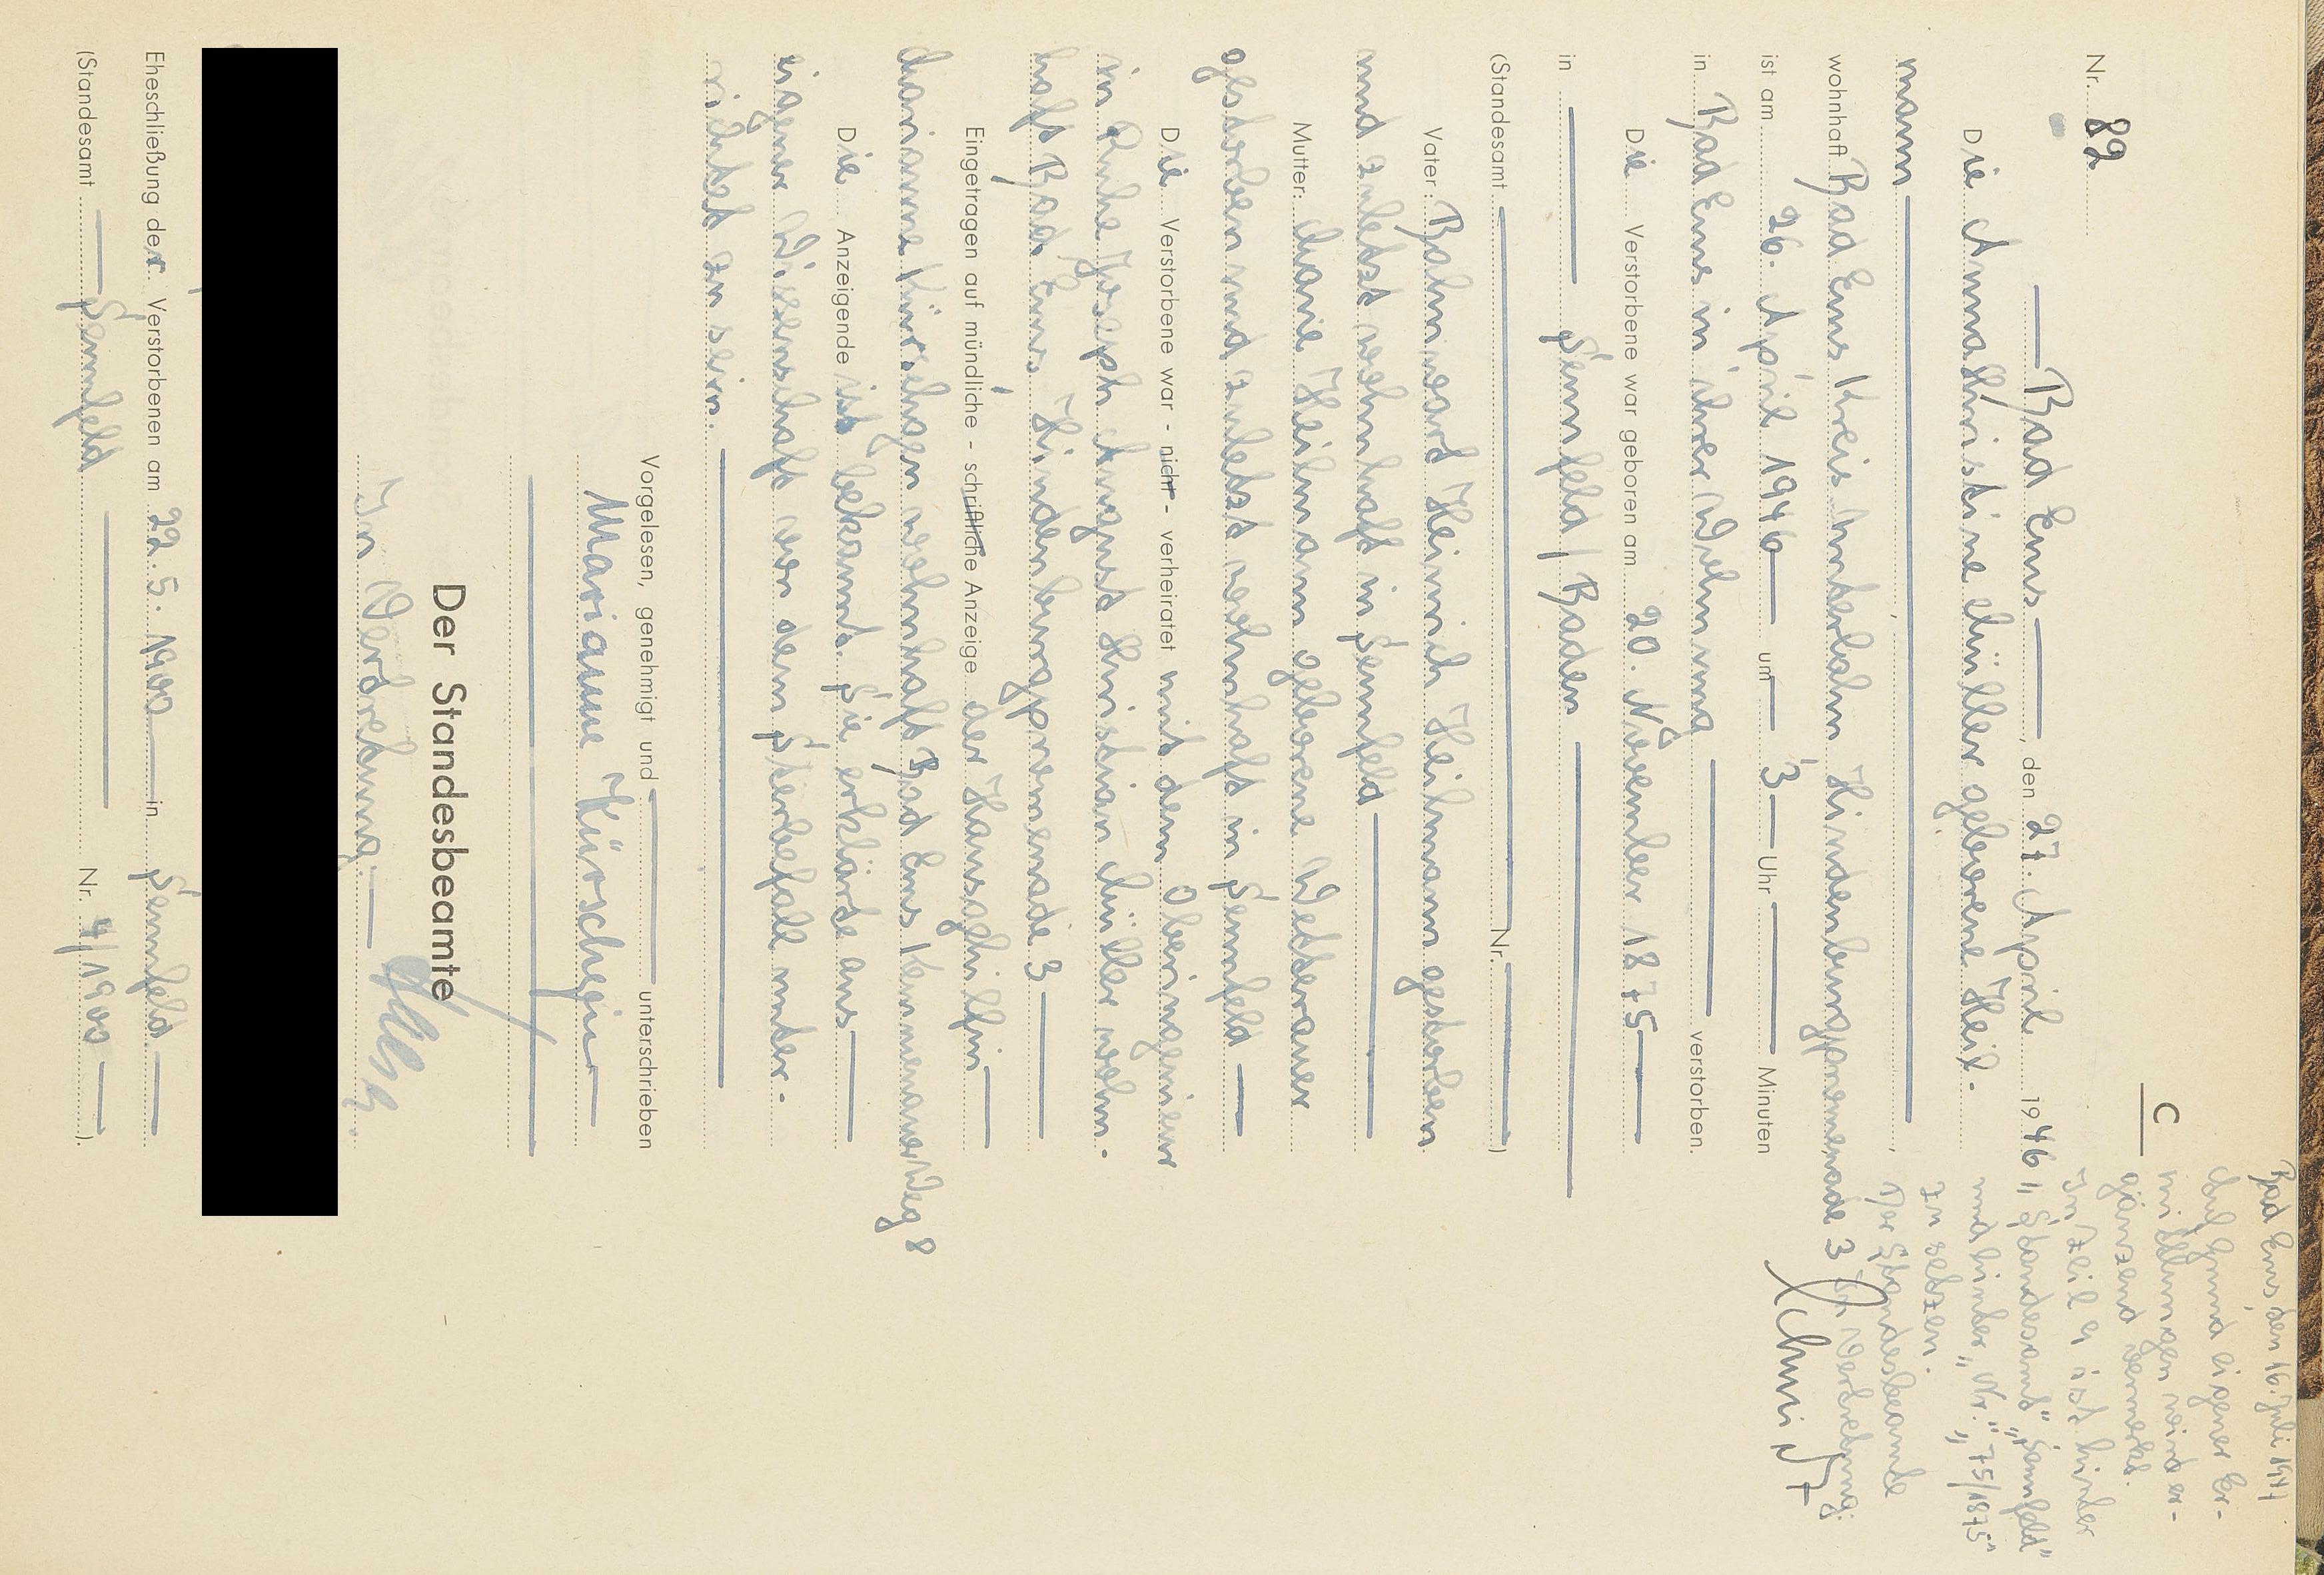 C
Nr. 82
Bad Ems, den 27. April 1946
Die Anna Christine Müller geborene Heil-
mann
wohnhaft Bad Ems Kreis Unterlahn Hindenburgpromenade 3
ist am 26. April 1946 um 3 Uhr Minuten
in Bad Ems in ihrer Wohnung verstorben.
Die Verstorbene war geboren am 20. November 1875
in Sennfeld / Baden
(Standesamt Nr. )
Vater: Bahnwart Heinrich Heilmann gestorben
und zuletzt wohnhaft in Sennfeld
Mutter: Marie Heilmann geborene Wetterauer
gestorben und zuletzt wohnhaft in Sennfeld
Die Verstorbene war - nicht - verheiratet mit dem Oberingenieur
in Ruhe Joseph August Christian Müller wohn-
haft Bad Ems Hindenburgpromenade 3
Eingetragen auf mündliche - schriftliche Anzeige der Hausgehilfin
Marianne Kürschgen wohnhaft Bad Ems Kemmenauer Weg 8
Die Anzeigende ist bekannt. Sie erklärte aus
eigener Wissenschaft von dem Sterbefall unter-
richtet zu sein.
Vorgelesen, genehmigt und unterschrieben
Marianne Kürschgen
Der Standesbeamte
In Vertretung:
Eheschließung der Verstorbenen am 22. 5. 1900 in Sennfeld
(Standesamt Sennfeld Nr. 4/1900 ).
Bad Ems, den 16. Juli 1947
Auf Grund eigener Er-
mittlungen wird er-
gänzend vermerkt.
In Zeile 9 ist hinter
"Standesamt" "Sennfeld"
und hinter "Nr." "75/1875"
zu setzen.
Der Standesbeamte
In Vertretung: